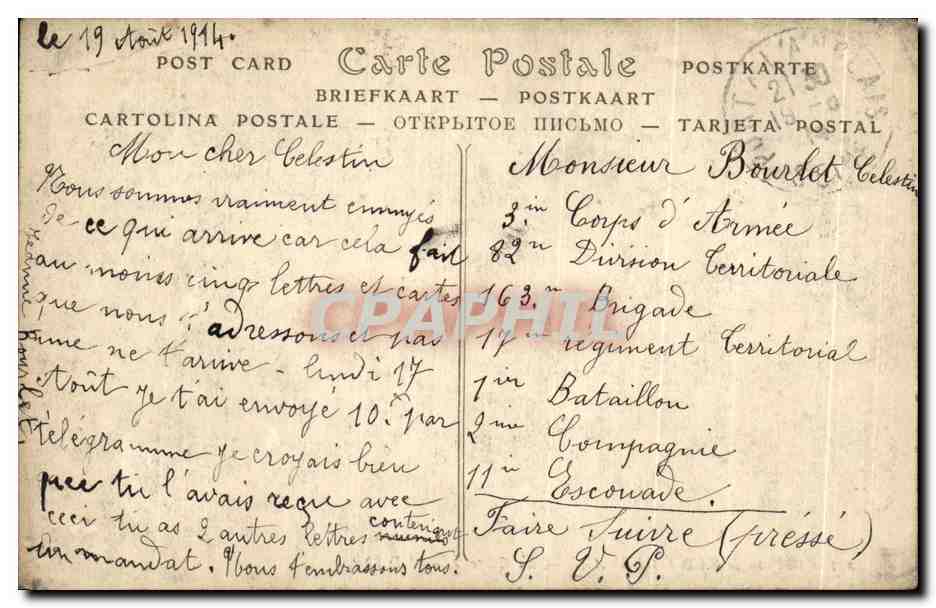 le 19 Août 1914.
POST CARD Carte Postale POSTKARTE
BRIEFKAART — POSTKAART
CARTOLINA POSTALE — ОТКРЫТОЕ ПИСЬМО — TARJETA POSTAL
Mon cher Celestin
Nous sommes vraiment ennuyés
de ce qui arrive car cela fait
au moins cinq lettres et cartes
que nous t'adressons et pas
une ne t'arrive - lundi 17
Août je t'ai envoyé 10.f par
télégramme je croyais bien
que tu l'avais reçue avec
ceci tu as 2 autres lettres contenant
un mandat. Nous t'embrassons tous.
Jeanne Bourlet
Monsieur Bourlet Celestin
3.in Corps d'Armée
82n Division Territoriale
163.n Brigade
17in régiment Territorial
1ier Bataillon
2me Compagnie
11in Escouade.
Faire Suivre (préssé)
S. V. P.
CPAPHIL